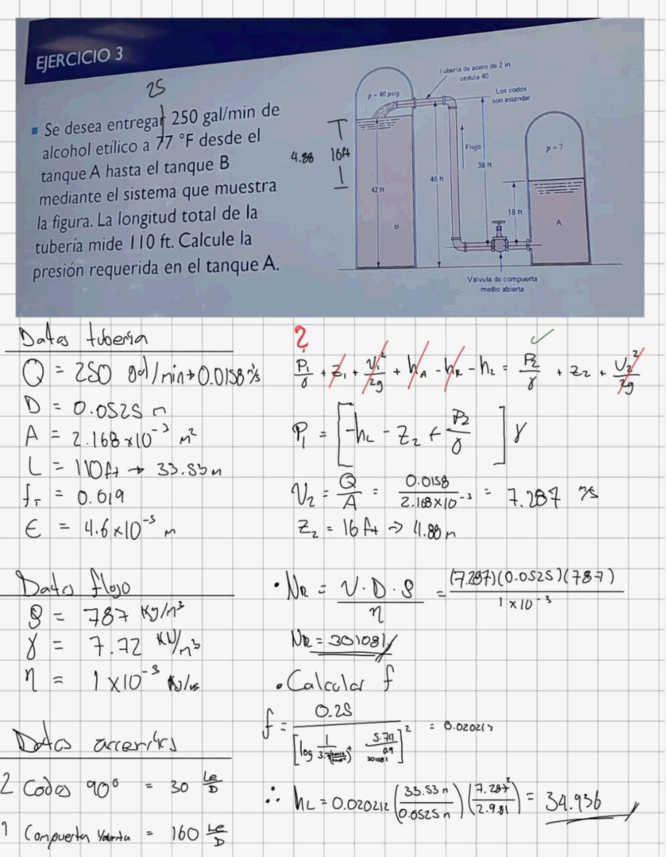 EJERCICIO 3
25
Se desea entregar 250 gal/min de
alcohol etílico a 77 °F desde el
tanque A hasta el tanque B
mediante el sistema que muestra
la figura. La longitud total de la
tubería mide 110 ft. Calcule la
presión requerida en el tanque A.
Tubería de acero de 2 in
cédula 40
p = 40 psig
Los codos
son estándar
4.88 16ft
Flujo
p = ?
38 ft
46 ft
42 ft
18 ft
B
A
Válvula de compuerta
medio abierta
Datos tubería
Q = 250 gal/min → 0.0158 m³/s
D = 0.0525 m
A = 2.168x10⁻³ m²
L = 110ft → 33.53m
f_T = 0.019
ϵ = 4.6x10⁻⁵ m
?
P₁/γ + z₁ + V₁²/2g + h_A - h_R - h_L = P₂/γ + z₂ + V₂²/2g
P₁ = [-h_L - z₂ + P₂/γ] γ
V₂ = Q/A = 0.0158/2.168x10⁻³ = 7.287 m/s
z₂ = 16ft → 4.88m
Datos flujo
ρ = 787 kg/m³
γ = 7.72 kN/m³
η = 1x10⁻³
• N_R = V·D·ρ/η = (7.287)(0.0525)(787)/1x10⁻³
N_R = 301081
• Calcular f
f = 0.25/[log 1/3.7 + 5.74/301081^0.9]² = 0.020212
Datos accesorios
2 Codos 90° = 30 Le/D
1 Compuerta = 160 Le/D
∴ h_L = 0.020212 (33.53m/0.0525m)(7.287²/2·9.81) = 34.936